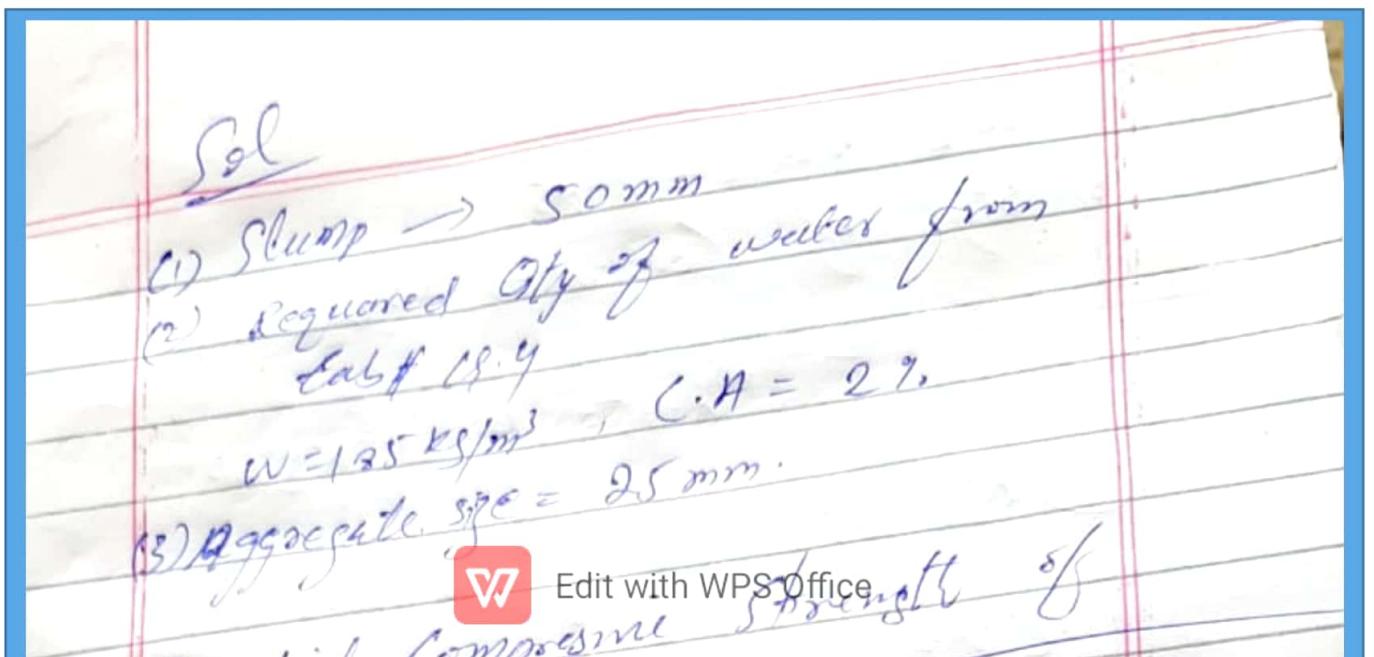 Sol
(1) Slump → 50mm
(2) Requared Qty of water from
19.4
W=185 kg/m³, C.A = 2%
(3) Aggregate size = 25 mm.
Edit with WPS Office
Compresive Strength of